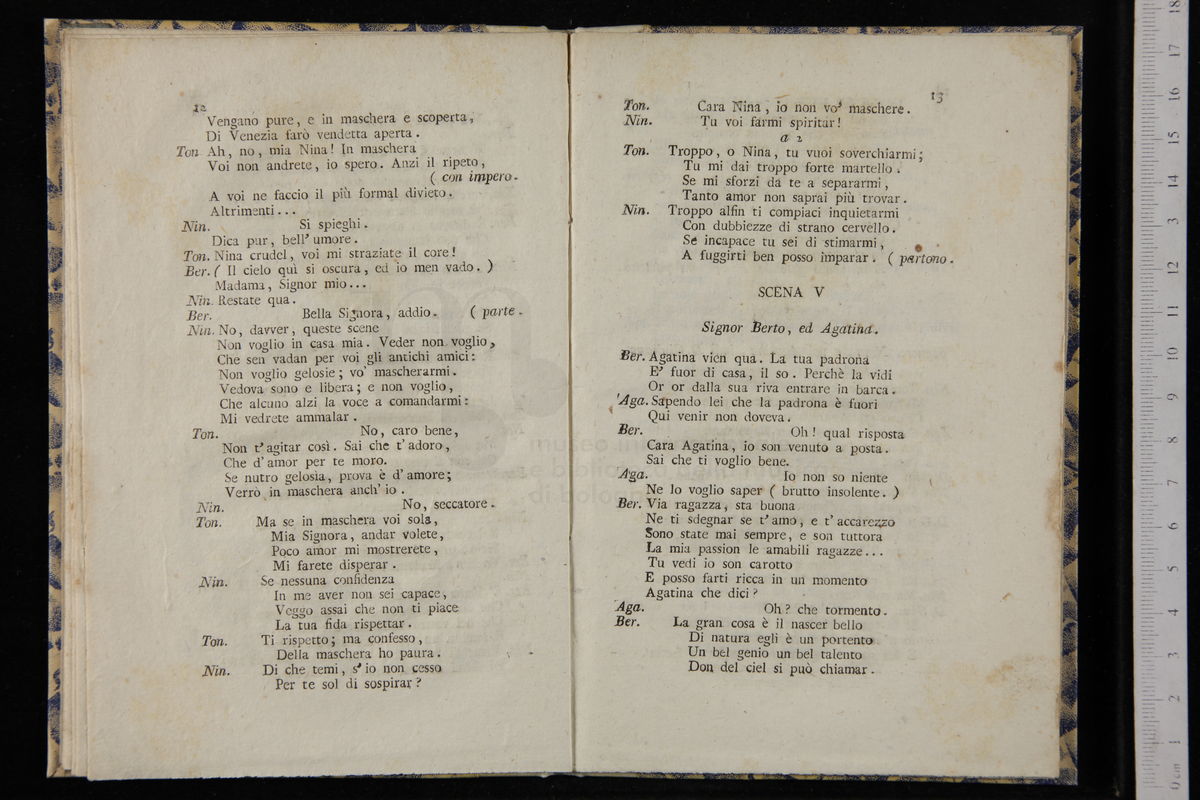 12
Vengano pure, e in maschera e scoperta,
Di Venezia farò vendetta aperta.
Ton Ah, no, mia Nina! In maschera
Voi non andrete, io spero. Anzi il ripeto,
( con impero.
A voi ne faccio il più formal divieto.
Altrimenti...
Nin. Si spieghi.
Dica pur, bell' umore.
Ton. Nina crudel, voi mi straziate il core!
Ber. ( Il cielo quì si oscura, ed io men vado. )
Madama, Signor mio...
Nin. Restate qua.
Ber. Bella Signora, addio. ( parte.
Nin. No, davver, queste scene
Non voglio in casa mia. Veder non voglio,
Che sen vadan per voi gli antichi amici:
Non voglio gelosie; vo' mascherarmi.
Vedova sono e libera; e non voglio,
Che alcuno alzi la voce a comandarmi:
Mi vedrete ammalar.
Ton. No, caro bene,
Non t' agitar così. Sai che t' adoro,
Che d' amor per te moro.
Se nutro gelosia, prova è d' amore;
Verrò in maschera anch' io.
Nin. No, seccatore.
Ton. Ma se in maschera voi sola,
Mia Signora, andar volete,
Poco amor mi mostrerete,
Mi farete disperar.
Nin. Se nessuna confidenza
In me aver non sei capace,
Veggo assai che non ti piace
La tua fida rispettar.
Ton. Ti rispetto; ma confesso,
Della maschera ho paura.
Nin. Di che temi, s' io non cesso
Per te sol di sospirar?
13
Ton. Cara Nina, io non vo' maschere.
Nin. Tu voi farmi spiritar!
a 2
Ton. Troppo, o Nina, tu vuoi soverchiarmi;
Tu mi dai troppo forte martello.
Se mi sforzi da te a separarmi,
Tanto amor non saprai più trovar.
Nin. Troppo alfin ti compiaci inquietarmi
Con dubbiezze di strano cervello.
Se incapace tu sei di stimarmi,
A fuggirti ben posso imparar. ( partono.
SCENA V
Signor Berto, ed Agatina.
Ber. Agatina vien qua. La tua padrona
E' fuor di casa, il so. Perchè la vidi
Or or dalla sua riva entrare in barca.
Aga. Sapendo lei che la padrona è fuori
Qui venir non doveva.
Ber. Oh! qual risposta
Cara Agatina, io son venuto a posta.
Sai che ti voglio bene.
Aga. Io non so niente
Ne lo voglio saper ( brutto insolente. )
Ber. Via ragazza, sta buona
Ne ti sdegnar se t' amo, e t' accarezzo
Sono state mai sempre, e son tuttora
La mia passion le amabili ragazze...
Tu vedi io son carotto
E posso farti ricca in un momento
Agatina che dici?
Aga. Oh? che tormento.
Ber. La gran cosa è il nascer bello
Di natura egli è un portento
Un bel genio un bel talento
Don del ciel si può chiamar.